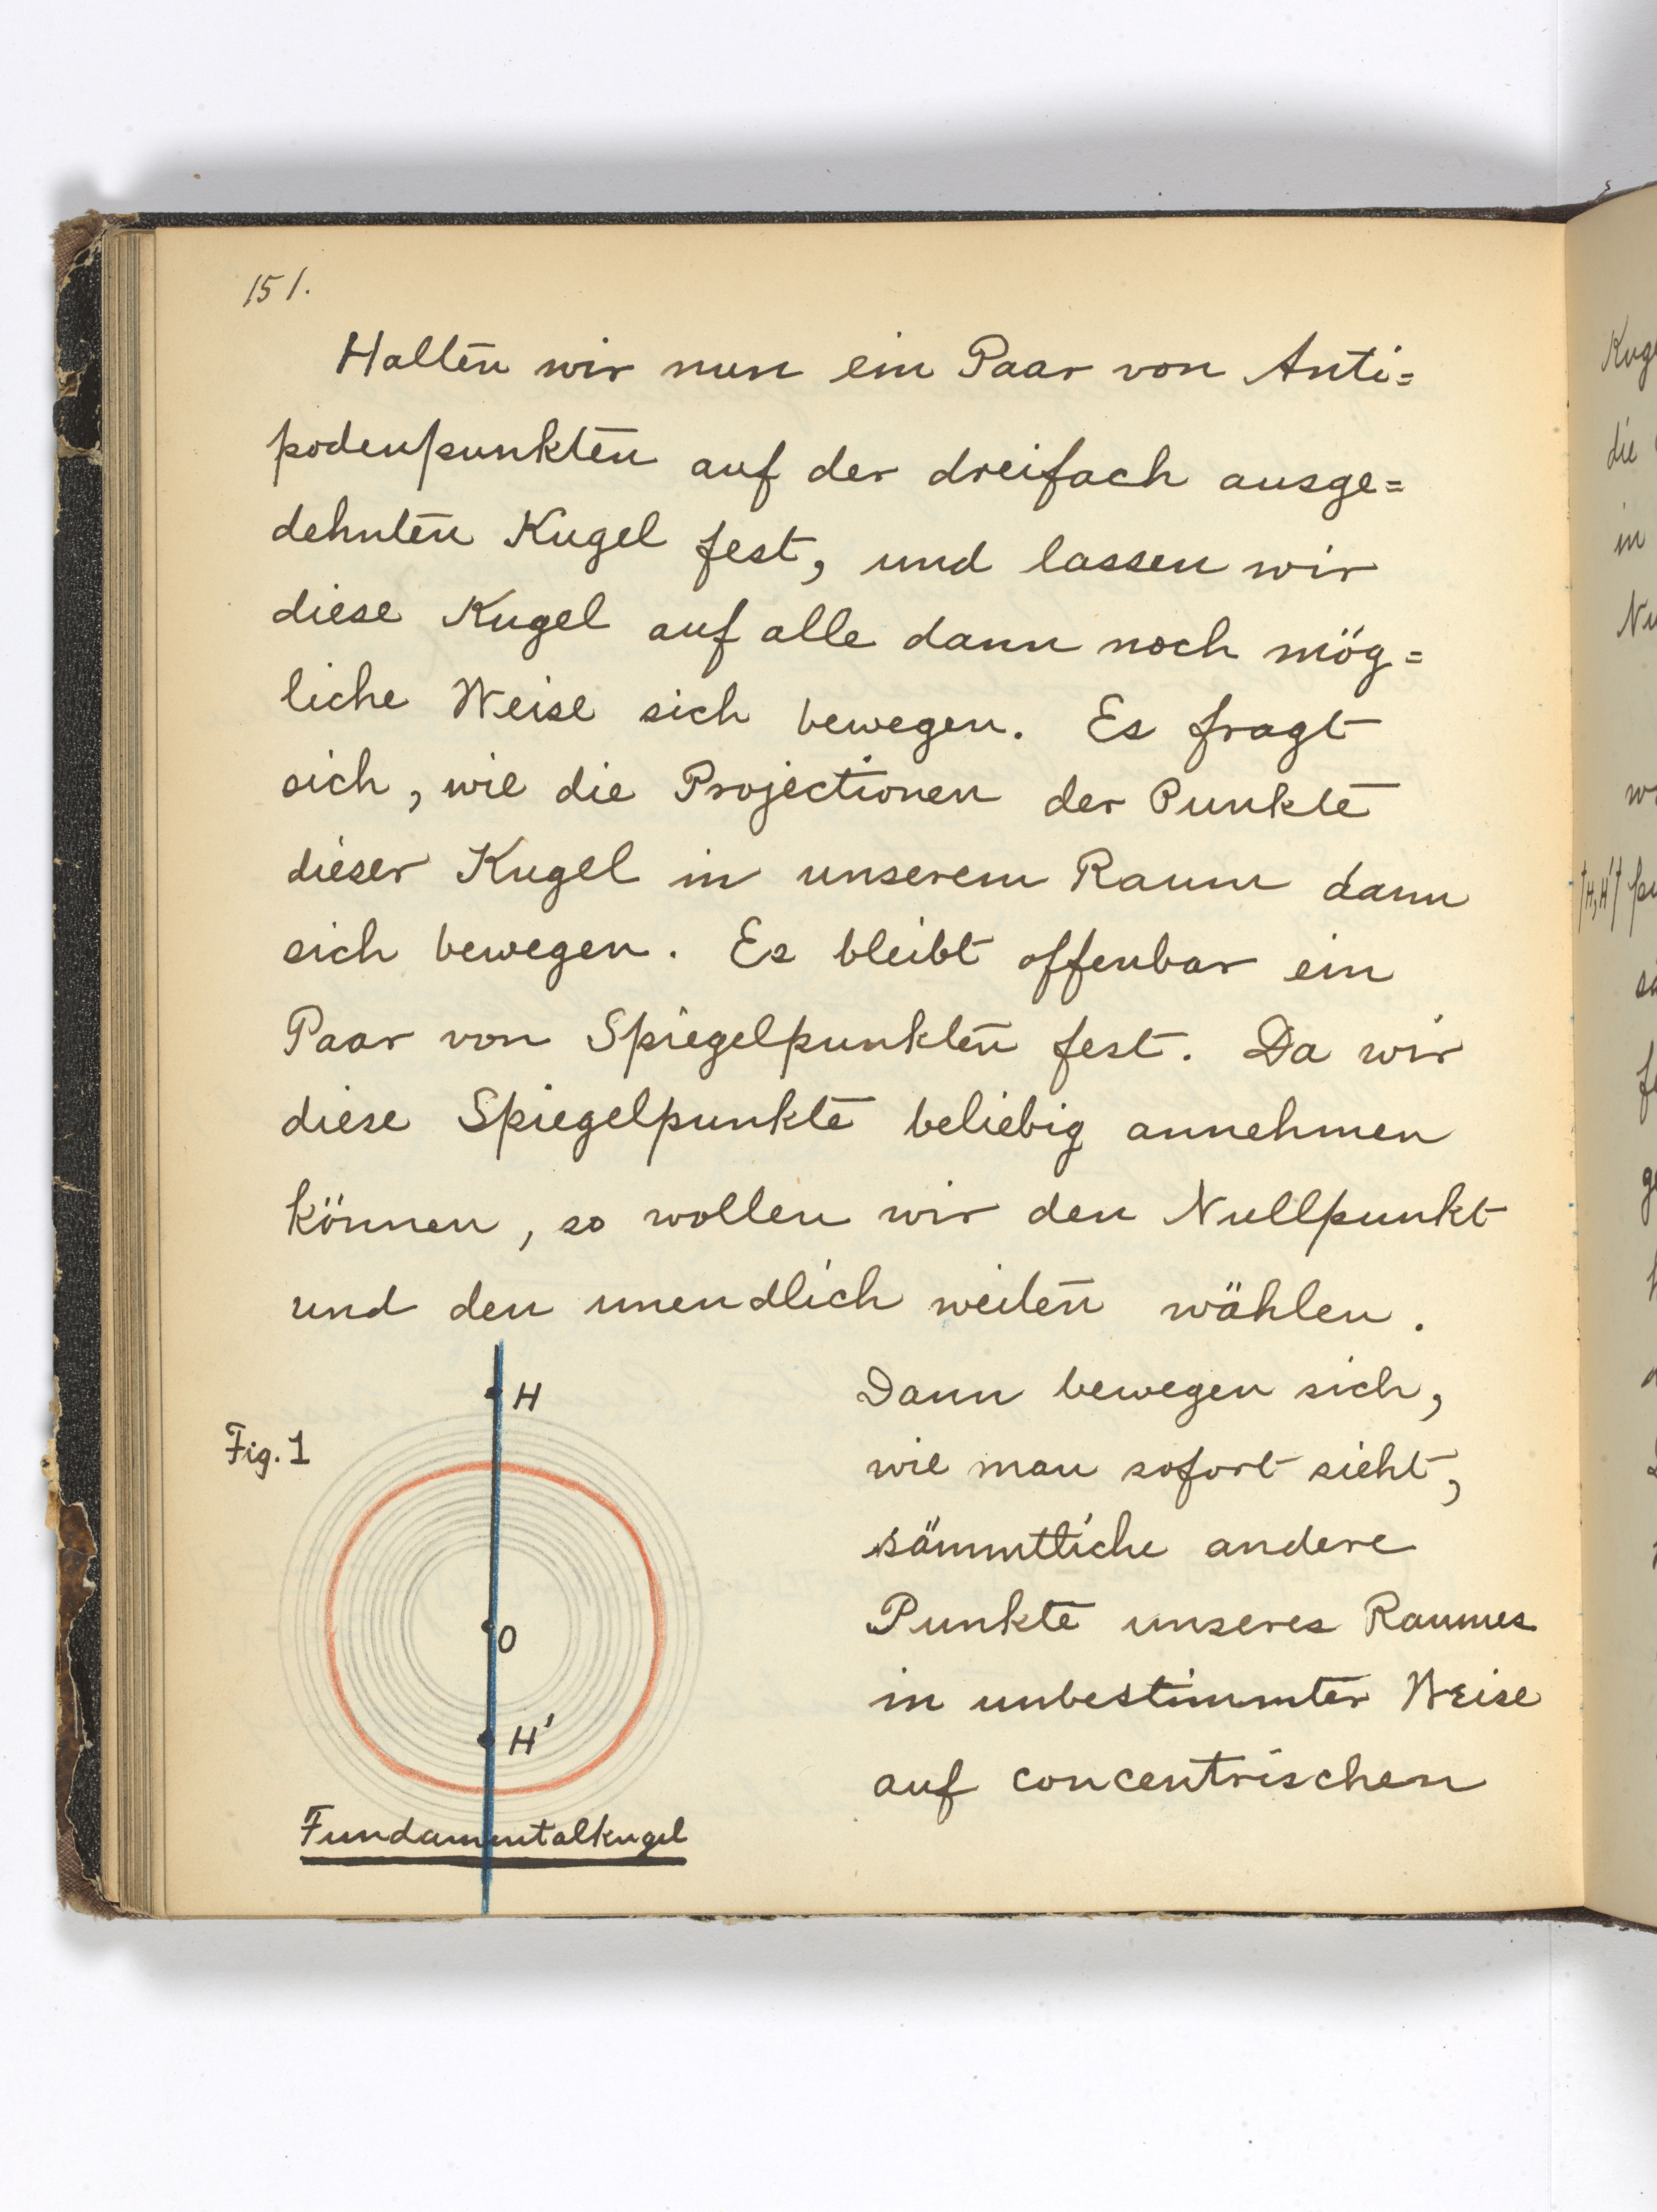 151.
Halten wir nun ein Paar von Anti=
podenpunkten auf der dreifach ausge=
dehnten Kugel fest, und lassen wir
diese Kugel auf alle dann noch mög=
liche Weise sich bewegen. Es fragt
sich, wie die Projectionen der Punkte
dieser Kugel in unserem Raum dann
sich bewegen. Es bleibt offenbar ein
Paar von Spiegelpunkten fest. Da wir
diese Spiegelpunkte beliebig annehmen
können, so wollen wir den Nullpunkt
und den unendlich weiten wählen.
Dann bewegen sich,
wie man sofort sieht,
sämmtliche andere
Punkte unseres Raumes
in unbestimmter Weise
auf concentrischen
Fig. 1
H
O
H'
Fundamentalkugel
die
in
H, H'